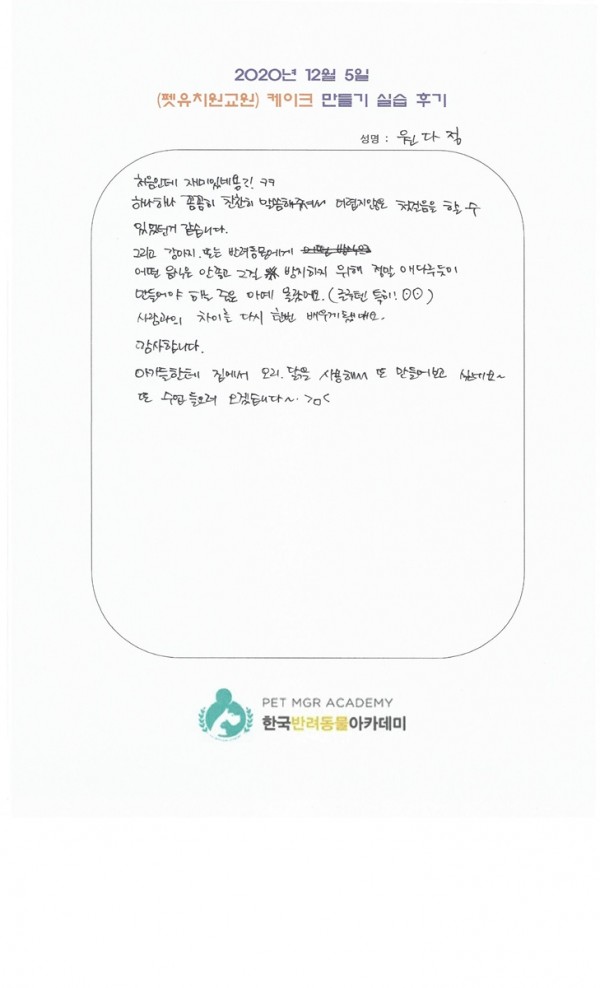 2020년 12월 5일
(펫유치원교원) 케이크 만들기 실습 후기
성명 : 원다정
처음인데 재미있네용?! ㅋㅋ
하나하나 꼼꼼히 친찬히 말씀해주셔서 어렵지않은 첫걸음을 할 수
있었던거 같습니다.
그리고 강아지. 또는 반려동물에게
어떤 음식은 안좋고 그걸 방지하지 위해 정말 애다루듯이
만들어야 하는 줄은 아예 몰랐어요. ( 특히! ㅇㅇ)
사람과의 차이를 다시 한번 배우게 됐네요.
감사합니다.
아가들한테 집에서 오리. 닭을 사용해서 또 만들어보고 싶네요~
또 수업 들으러 오겠습니다~. >ㅁ<
PET MGR ACADEMY
한국반려동물아카데미